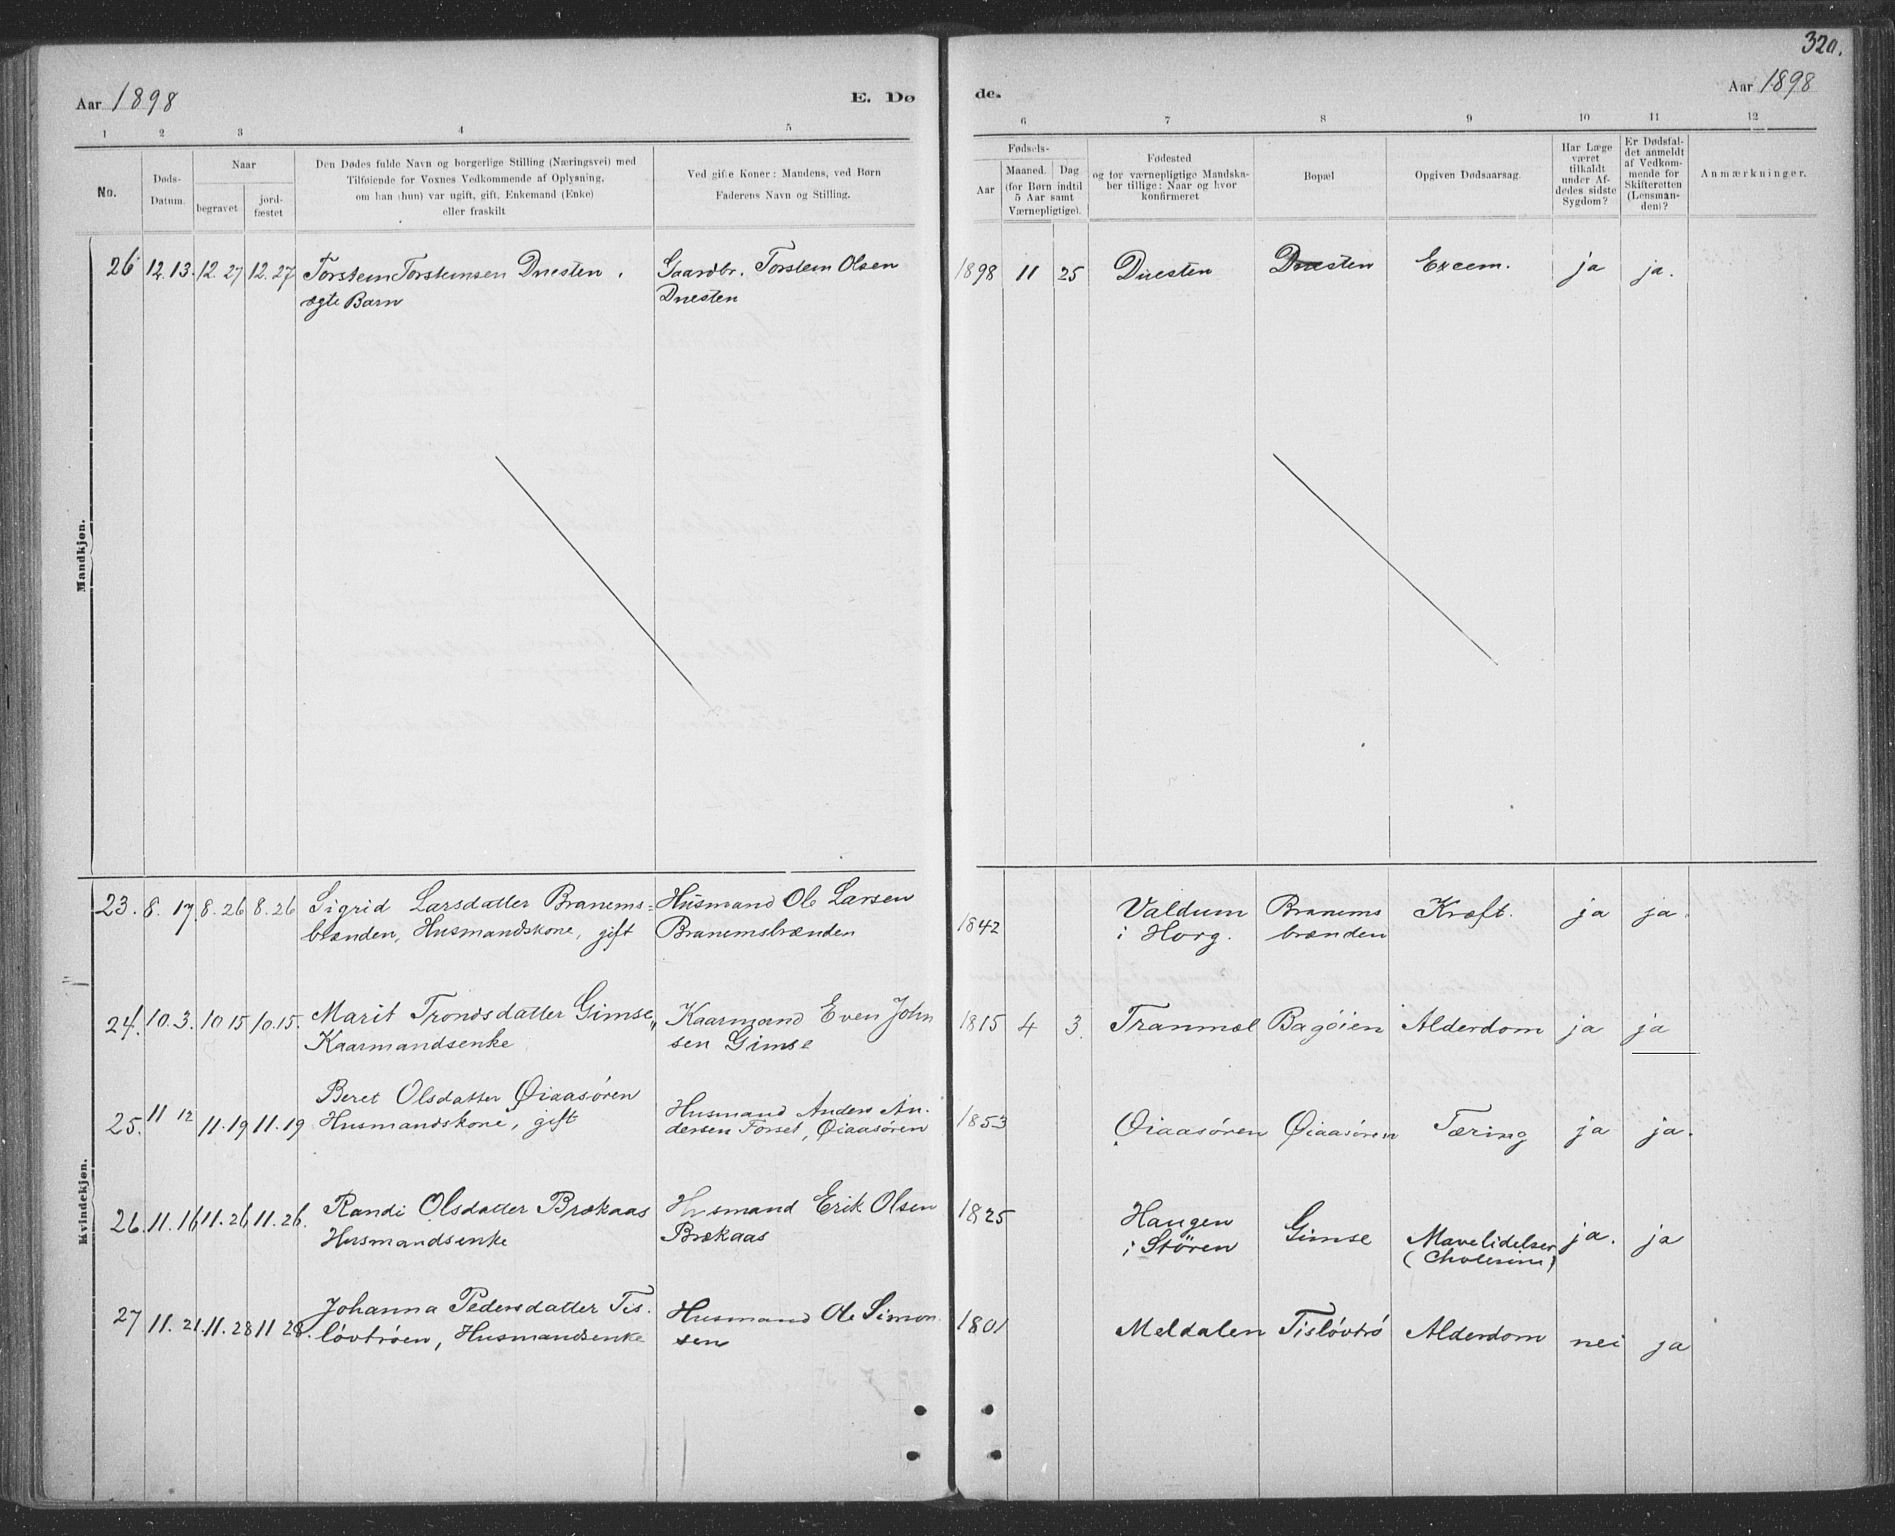 320.
Aar 1898
E. Dø
de.
Aar 1898
1 2 3 4 5 6 7 8 9 10 11 12
No.
Døds-Datum.
Naar
begravet
jord-fæstet
Den Dødes fulde Navn og borgerlige Stilling (Næringsvei) med
Tilføiende for Voxnes Vedkommende af Oplysning,
om han (hun) var ugift, gift, Enkemand (Enke)
eller fraskilt
Ved gifte Koner: Mandens, ved Børn
Faderens Navn og Stilling.
Fødsels-
Aar
Maaned. Dag
(for Børn indtil
5 Aar samt
Værnepligtige).
Fødested
og for værnepligtige Mandska-
ber tillige: Naar og hvor
konfirmeret
Bopæl
Opgiven Dødsaarsag.
Har Læge
været
tilkaldt
under Af-
dødes sidste
Sygdom?
Er Dødsfal-
det anmeldt
af Vedkom-
mende for
Skifteretten
(Lensman-
den)?
Anmærkninger.
Mandkjøn.
26 12.13. 12 27 12.27 Torstein Torsteinsen Duesten, Gaardbr. Torstein Olsen 1898 11 25 Duesten Duesten Excem. ja ja.
ægte Barn Duesten
Kvindekjøn.
23. 8. 17 8. 26 8. 26 Sigrid Larsdatter Branems= Husmand Ole Larsen 1842 Valdum Branems Kræft. ja ja.
brænden, Husmandskone, gift Branemsbrænden i Horg. brænden
24. 10. 3. 10 15 10.15. Marit Trondsdatter Gimse, Kaarmand Even John 1815 4 3. Tranmæl Bagøien Alderdom ja ja
Kaarmandsenke sen Gimse
25. 11 12 11.19 11.19 Beret Olsdatter Øiaasøren Husmand Anders An. 1853 Øiaasøren Øiaasøren Tæring ja ja.
Husmandskone, gift dersen Forset, Øiaasøren
26. 11. 16 11.26 11.26. Randi Olsdatter Brækaas Husmand Erik Olsen 1825 Haugen Gimse Mavelidelser ja. ja
Husmandsenke Brækaas i Støren (Cholerine)
27 11. 21. 11.28 11 28. Johanna Pedersdatter Tis. Husmand Ole Simon 1801 Meldalen Tisløvtrø Alderdom nei ja
løvtrøen, Husmandsenke sen